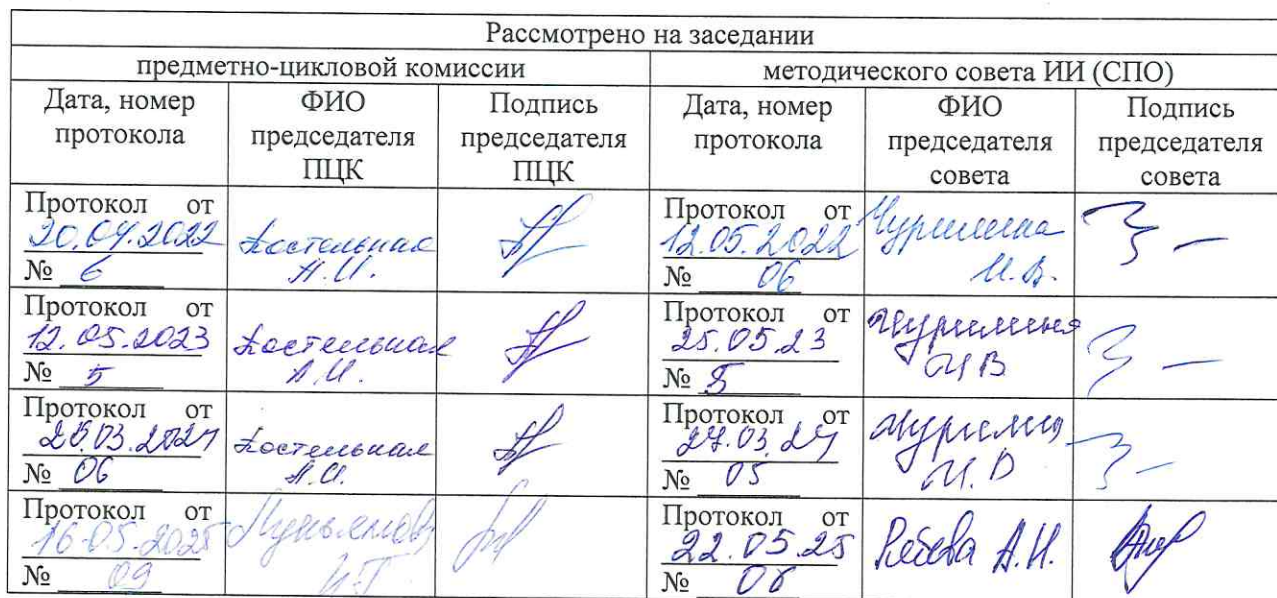 Рассмотрено на заседании
предметно-цикловой комиссии
методического совета ИИ (СПО)
Дата, номер
протокола
ФИО
председателя
ПЦК
Подпись
председателя
ПЦК
Дата, номер
протокола
ФИО
председателя
совета
Подпись
председателя
совета
Протокол от
20.04.2022
№ 6
Костельная
А.И.
Протокол от
12.05.2022
№ 06
И.В.
Протокол от
12.05.2023
№ 5
Костельная
А.И.
Протокол от
25.05.23
№ 5
И.В.
Протокол от
03.2024
№ 06
Костельная
А.И.
Протокол от
03.24
№ 05
И.В.
Протокол от
16.05.2025
№ 09
Протокол от
22.05.25
№
А.И.